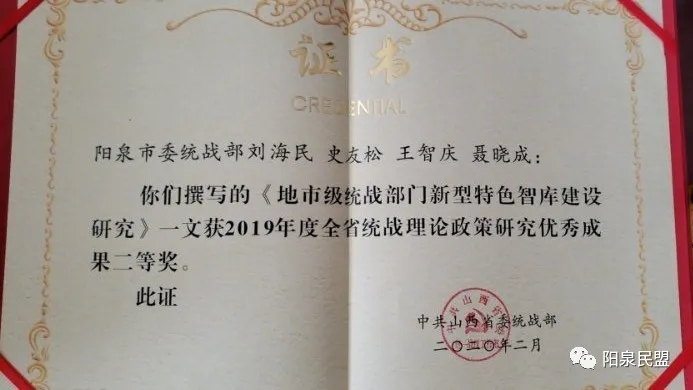 证书
CREDENTIAL
阳泉市委统战部刘海民 史友松 王智庆 聂晓成：
你们撰写的《地市级统战部门新型特色智库建设
研究》一文获2019年度全省统战理论政策研究优秀成
果二等奖。
此证
中共山西省委统战部
二〇二〇年二月
阳泉民盟